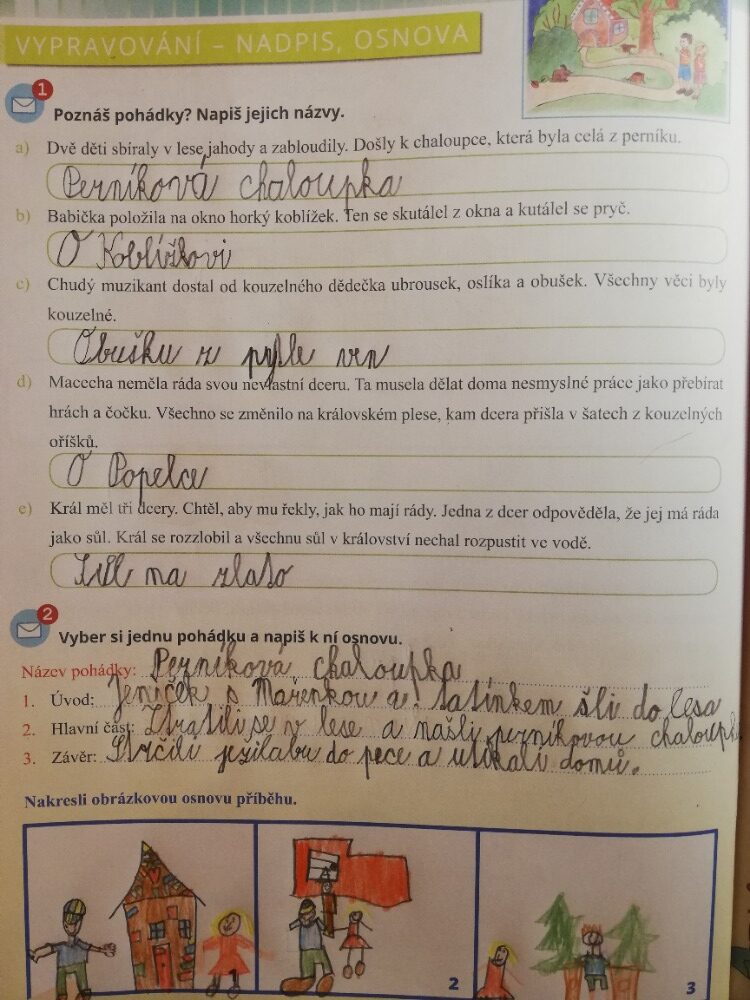 VYPRAVOVÁNÍ – NADPIS, OSNOVA
1
Poznáš pohádky? Napiš jejich názvy.
a) Dvě děti sbíraly v lese jahody a zabloudily. Došly k chaloupce, která byla celá z perníku.
Perníková chaloupka
b) Babička položila na okno horký koblížek. Ten se skutálel z okna a kutálel se pryč.
O Koblížkovi
c) Chudý muzikant dostal od kouzelného dědečka ubrousek, oslíka a obušek. Všechny věci byly
kouzelné.
Obušku z pytle ven
d) Macecha neměla ráda svou nevlastní dceru. Ta musela dělat doma nesmyslné práce jako přebírat
hrách a čočku. Všechno se změnilo na královském plese, kam dcera přišla v šatech z kouzelných
oříšků.
O Popelce
e) Král měl tři dcery. Chtěl, aby mu řekly, jak ho mají rády. Jedna z dcer odpověděla, že jej má ráda
jako sůl. Král se rozzlobil a všechnu sůl v království nechal rozpustit ve vodě.
Sůl na zlato
2
Vyber si jednu pohádku a napiš k ní osnovu.
Název pohádky: Perníková chaloupka
1. Úvod: Jeníček s Mařenkou a tatínkem šli do lesa
2. Hlavní část: Ztratili se v lese a našli perníkovou chaloupk
3. Závěr: Strčili ježibabu do pece a utíkali domů.
Nakresli obrázkovou osnovu příběhu.
1
2
3